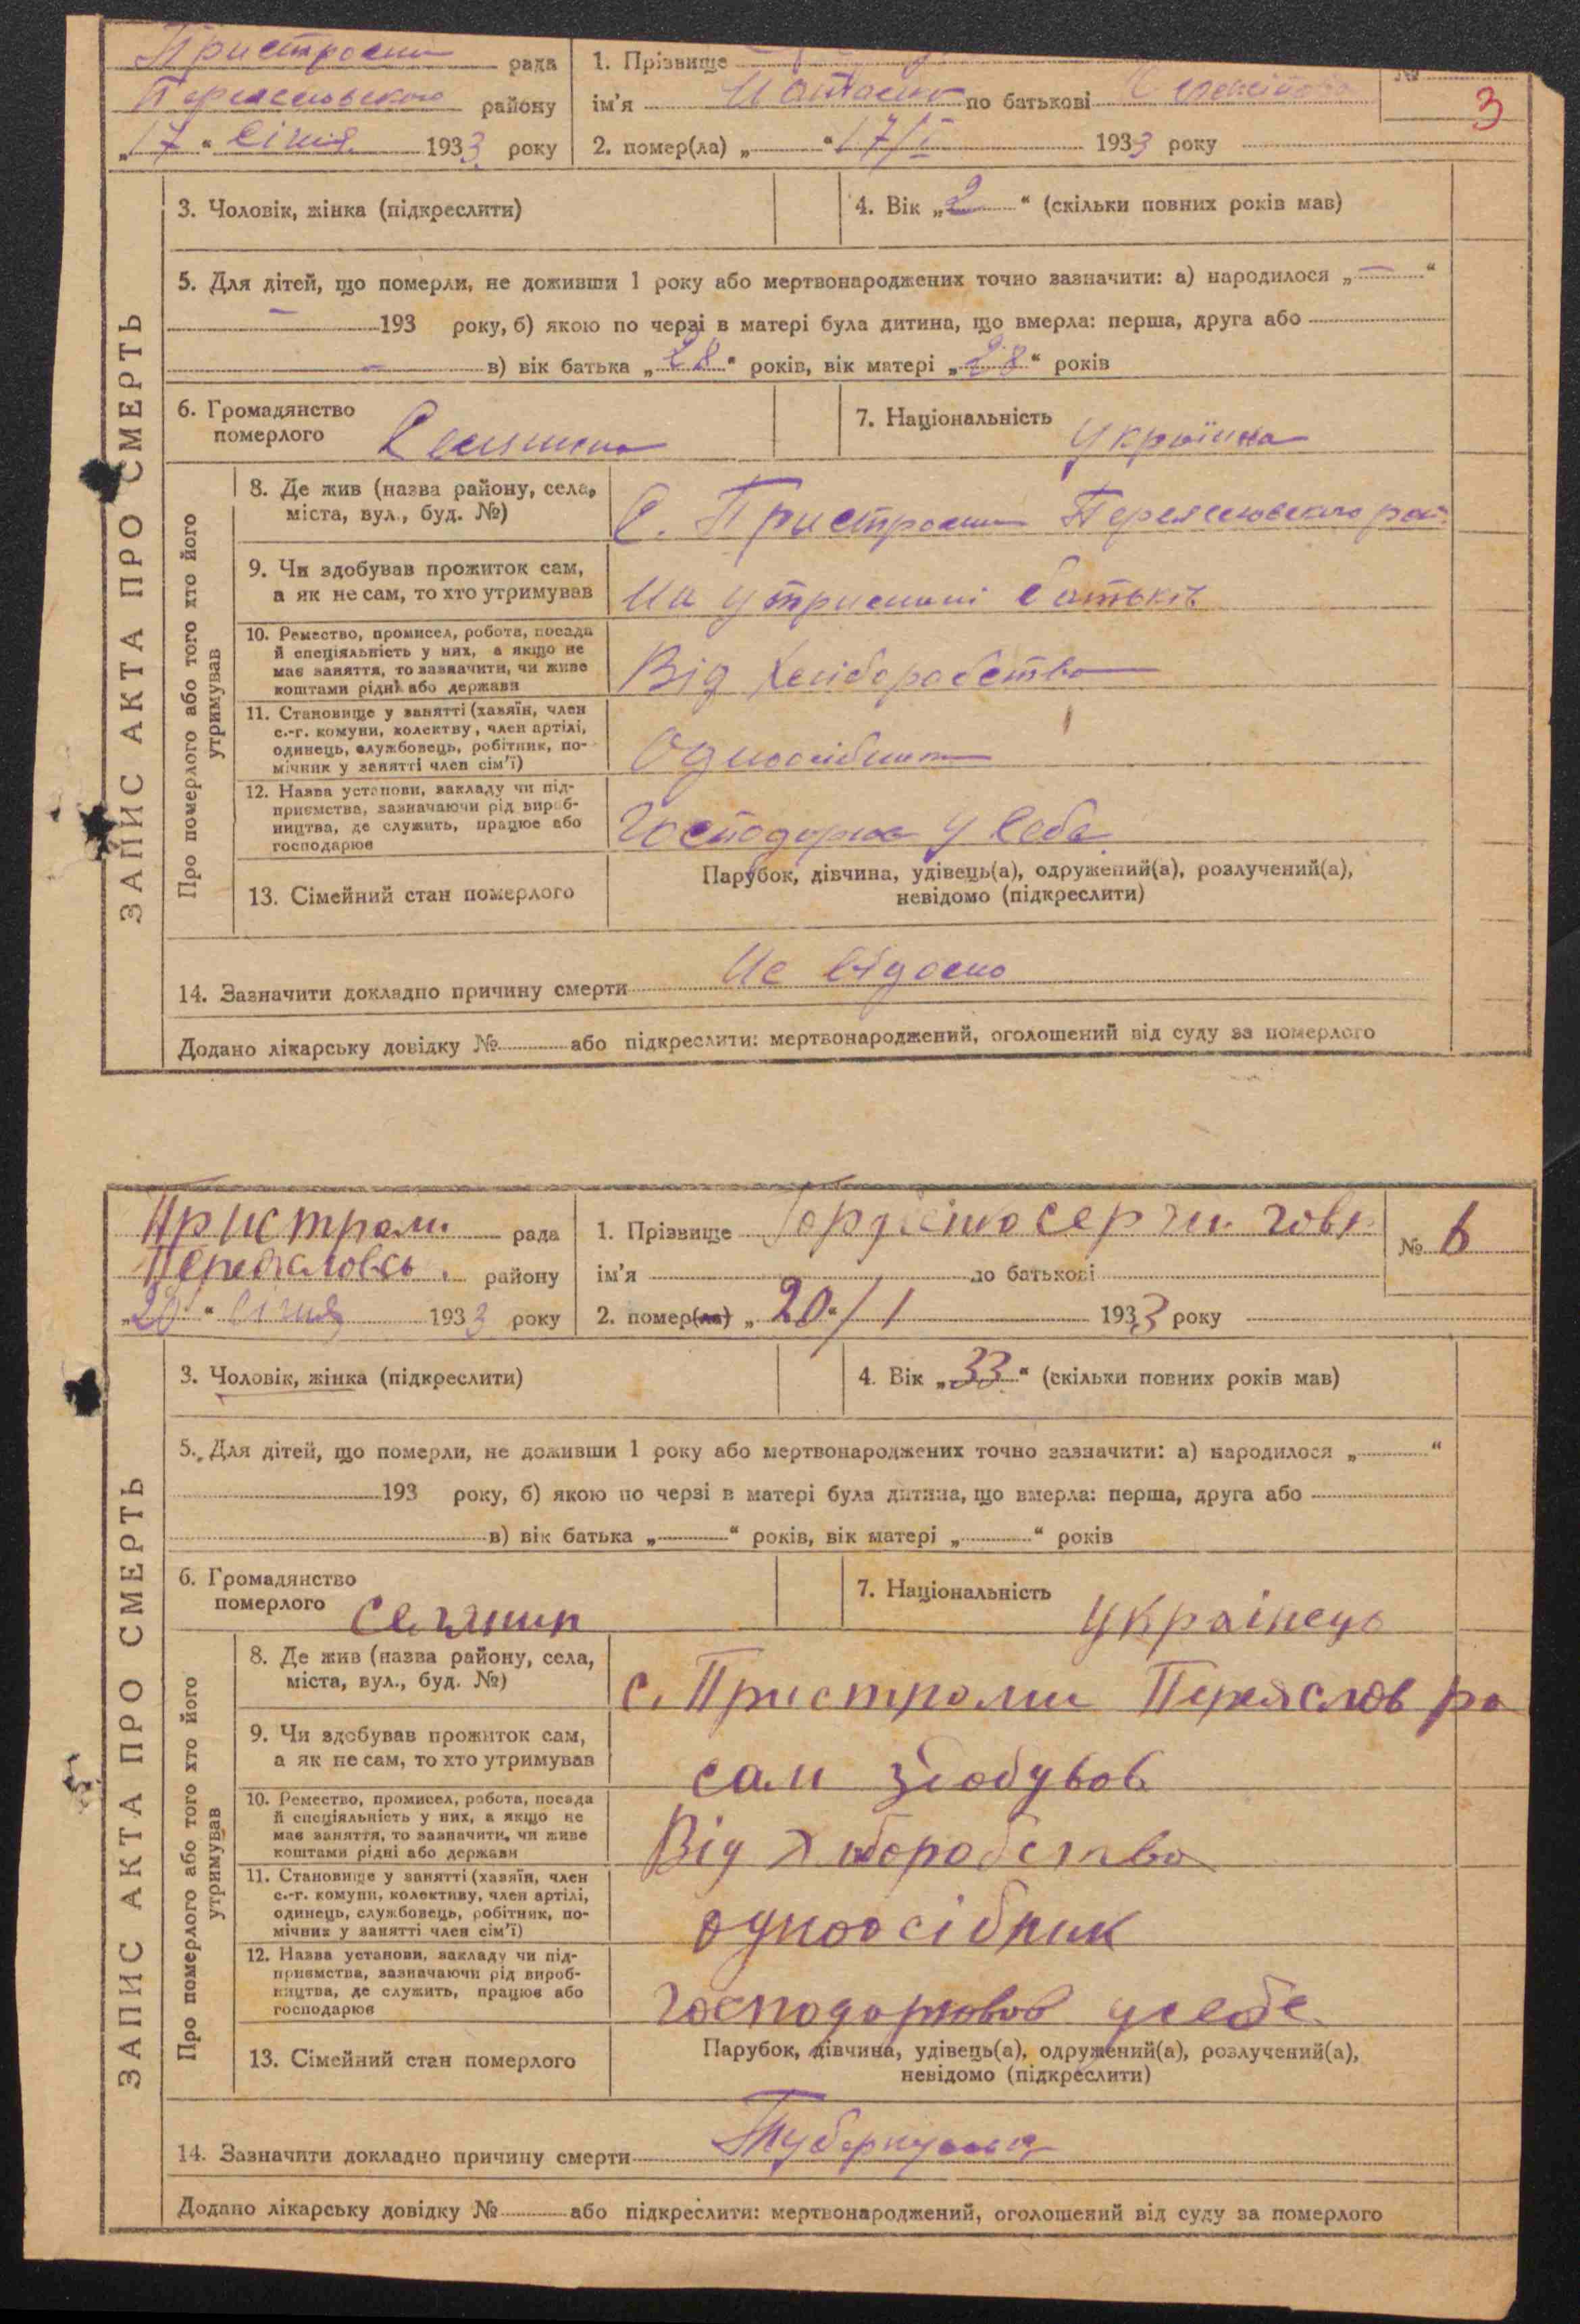 Пристроми рада
Переяславського району
„17“ січня 1933 року
1. Прізвище
ім'я по батькові
2. помер(ла) „ “ 17/I 1933 року
№
3
ЗАПИС АКТА ПРО СМЕРТЬ
3. Чоловік, жінка (підкреслити)
4. Вік „2“ (скільки повних років мав)
5. Для дітей, що померли, не доживши 1 року або мертвонароджених точно зазначити: а) народилося „—“
— 193 року, б) якою по черзі в матері була дитина, що вмерла: перша, друга або
— в) вік батька „28“ років, вік матері „28“ років
6. Громадянство
померлого
7. Національність Українка
Про померлого або того хто його
утримував
8. Де жив (назва району, села,
міста, вул., буд. №)
С. Пристроми Переяславського рай.
9. Чи здобував прожиток сам,
а як не сам, то хто утримував
На утриманні батьків
10. Ремество, промисел, робота, посада
й спеціяльність у них, а якщо не
має заняття, то зазначити, чи живе
коштами рідні або держави
Від хліборобства
11. Становище у занятті (хазяїн, член
с.-г. комуни, колектву, член артілі,
одинець, службовець, робітник, по-
мічник у занятті член сім'ї)
Одноосібник
12. Назва установи, закладу чи під-
приємства, зазначаючи рід вироб-
ництва, де служить, працює або
господарює
Господарює у себе
13. Сімейний стан померлого
Парубок, дівчина, удівець(а), одружений(а), розлучений(а),
невідомо (підкреслити)
14. Зазначити докладно причину смерти Не відомо
Додано лікарську довідку № або підкреслити: мертвонароджений, оголошений від суду за померлого
Пристром. рада
Переяславсь. району
„20“ січня 1933 року
1. Прізвище
ім'я по батькові
2. помер(ла) „20“/1 1933 року
№ 6
ЗАПИС АКТА ПРО СМЕРТЬ
3. Чоловік, жінка (підкреслити)
4. Вік „33“ (скільки повних років мав)
5. Для дітей, що померли, не доживши 1 року або мертвонароджених точно зазначити: а) народилося „ “
193 року, б) якою по черзі в матері була дитина, що вмерла: перша, друга або
в) вік батька „ “ років, вік матері „ “ років
6. Громадянство
померлого селянин
7. Національність Українець
Про померлого або того хто його
утримував
8. Де жив (назва району, села,
міста, вул., буд. №)
с. Пристроми Переяслов ра
9. Чи здобував прожиток сам,
а як не сам, то хто утримував
сам здобував
10. Ремество, промисел, робота, посада
й спеціяльність у них, а якщо не
має заняття, то зазначити, чи живе
коштами рідні або держави
Від хліборобства
11. Становище у занятті (хазяїн, член
с.-г. комуни, колективу, член артілі,
одинець, службовець, робітник, по-
мічник у занятті член сім'ї)
одноосібник
12. Назва установи, закладу чи під-
приємства, зазначаючи рід вироб-
ництва, де служить, працює або
господарює
господарював у себе
13. Сімейний стан померлого
Парубок, дівчина, удівець(а), одружений(а), розлучений(а),
невідомо (підкреслити)
14. Зазначити докладно причину смерти
Додано лікарську довідку № або підкреслити: мертвонароджений, оголошений від суду за померлого